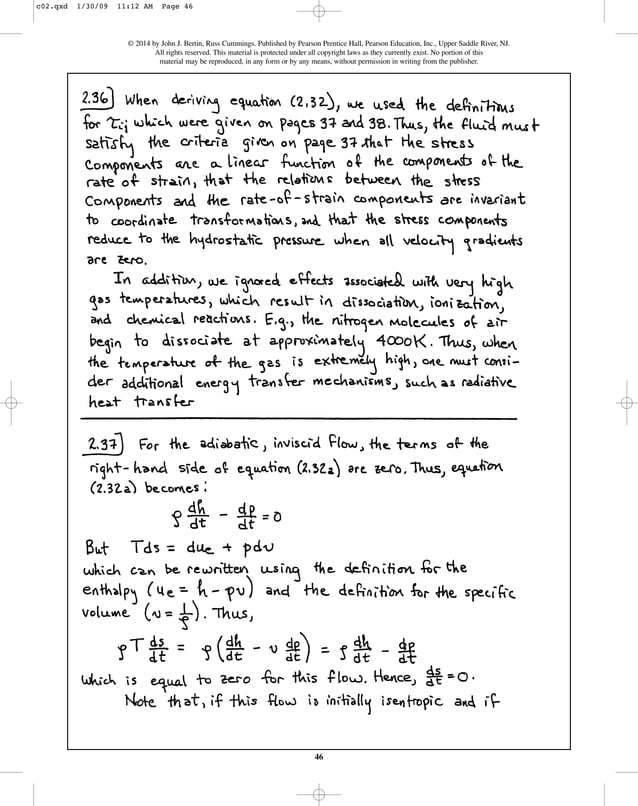 c02.qxd 1/30/09 11:12 AM Page 46
© 2014 by John J. Bertin, Russ Cummings. Published by Pearson Prentice Hall, Pearson Education, Inc., Upper Saddle River, NJ.
All rights reserved. This material is protected under all copyright laws as they currently exist. No portion of this
material may be reproduced, in any form or by any means, without permission in writing from the publisher.
2.36] When deriving equation (2.32), we used the definitions
for τij which were given on pages 37 and 38. Thus, the fluid must
satisfy the criteria given on page 37 that the stress
components are a linear function of the components of the
rate of strain, that the relations between the stress
components and the rate-of-strain components are invariant
to coordinate transformations, and that the stress components
reduce to the hydrostatic pressure when all velocity gradients
are zero.
In addition, we ignored effects associated with very high
gas temperatures, which result in dissociation, ionization,
and chemical reactions. E.g., the nitrogen molecules of air
begin to dissociate at approximately 4000K. Thus, when
the temperature of the gas is extremely high, one must consi-
der additional energy transfer mechanisms, such as radiative
heat transfer
2.37] For the adiabatic, inviscid flow, the terms of the
right-hand side of equation (2.32a) are zero. Thus, equation
(2.32a) becomes:
ρ dh/dt - dp/dt = 0
But Tds = due + pdv
which can be rewritten using the definition for the
enthalpy (ue = h - pv) and the definition for the specific
volume (v = 1/ρ). Thus,
ρT ds/dt = ρ(dh/dt - v dp/dt) = ρ dh/dt - dp/dt
which is equal to zero for this flow. Hence, ds/dt = 0.
Note that, if this flow is initially isentropic and if
46